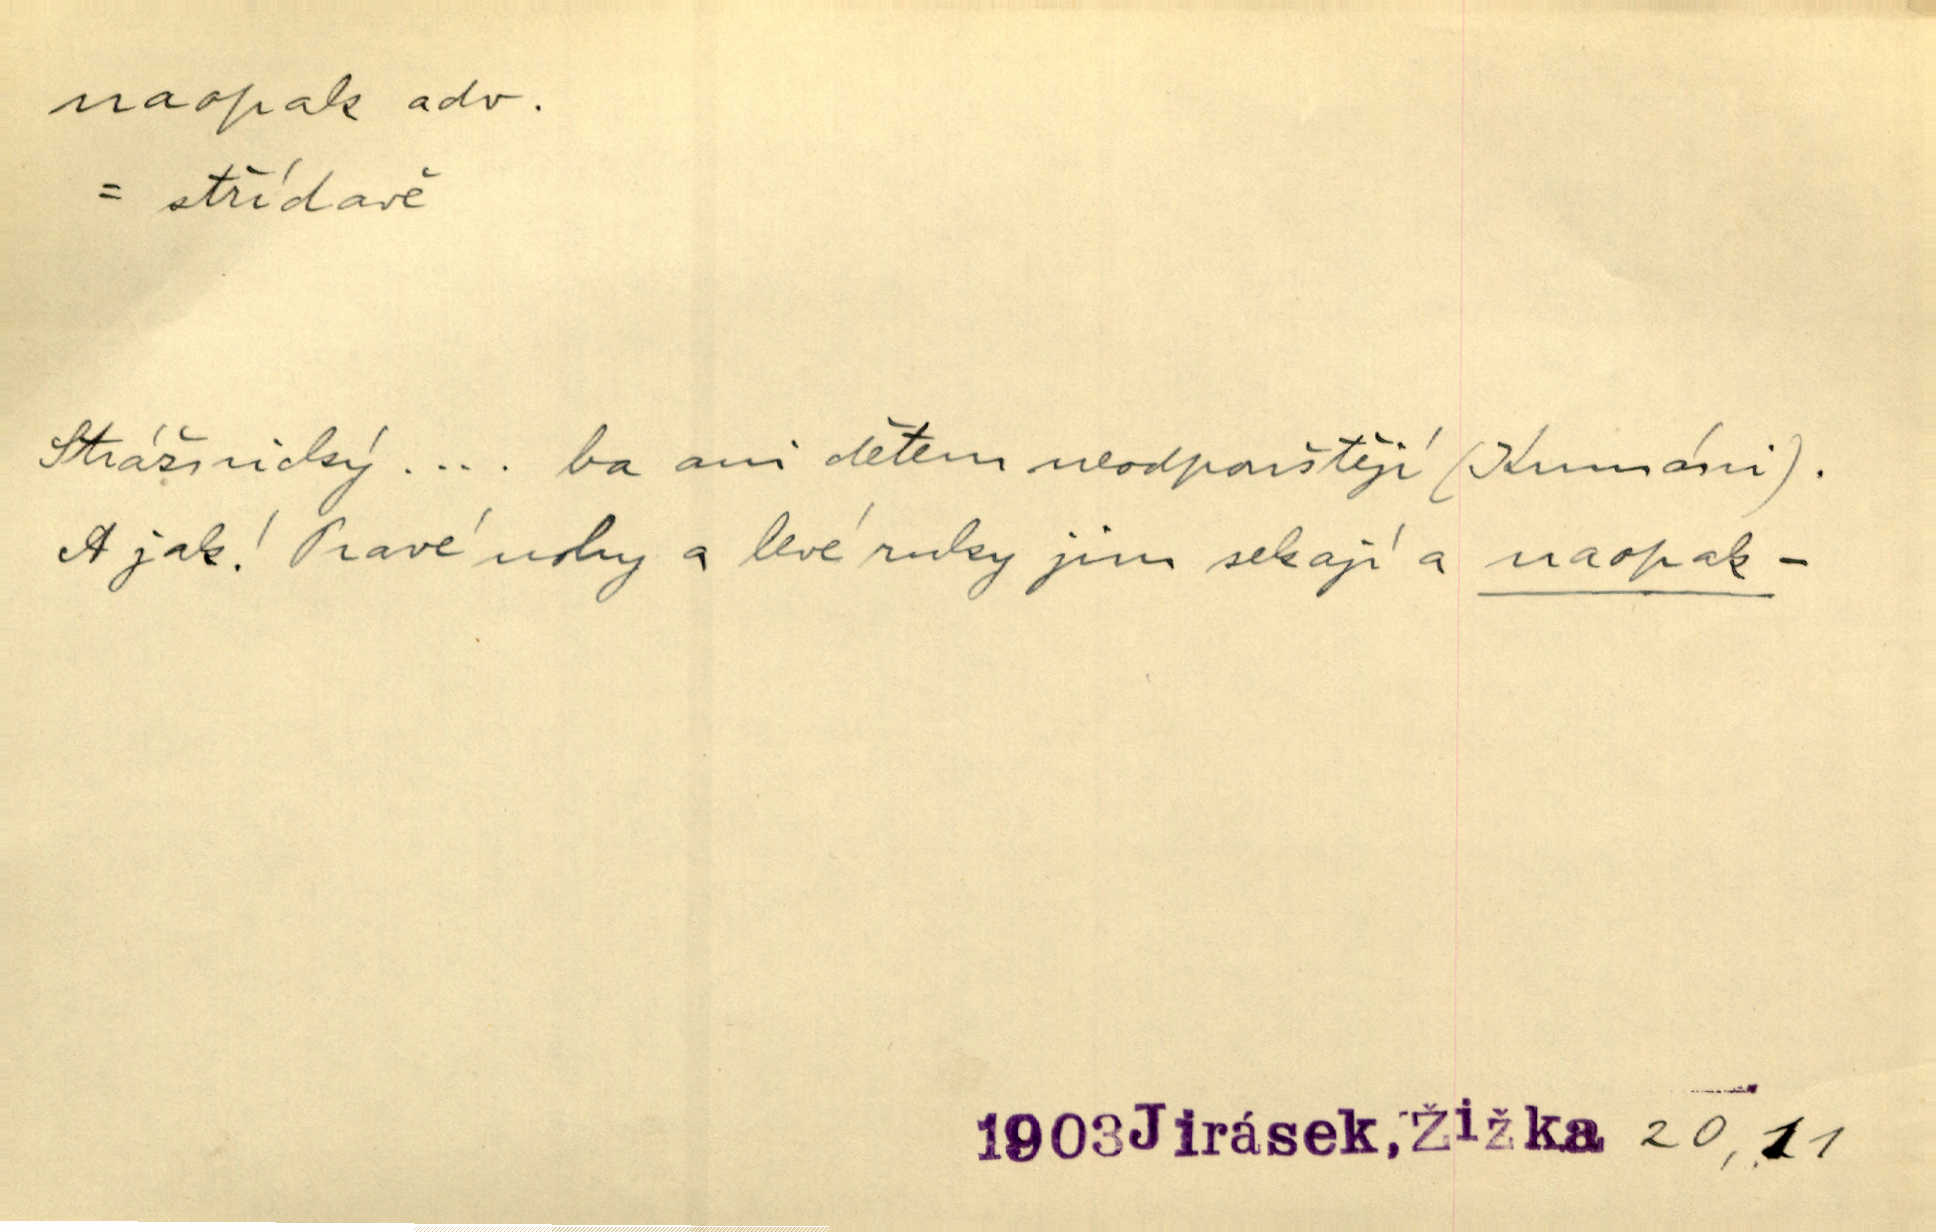 naopak adv.
= střídavě
Strážnický .... ba ani dětem neodpouštějí (Kumáni).
A jak! Pravé nohy a levé ruky jim sekají a naopak -
1903 Jirásek, Žižka 20, 11